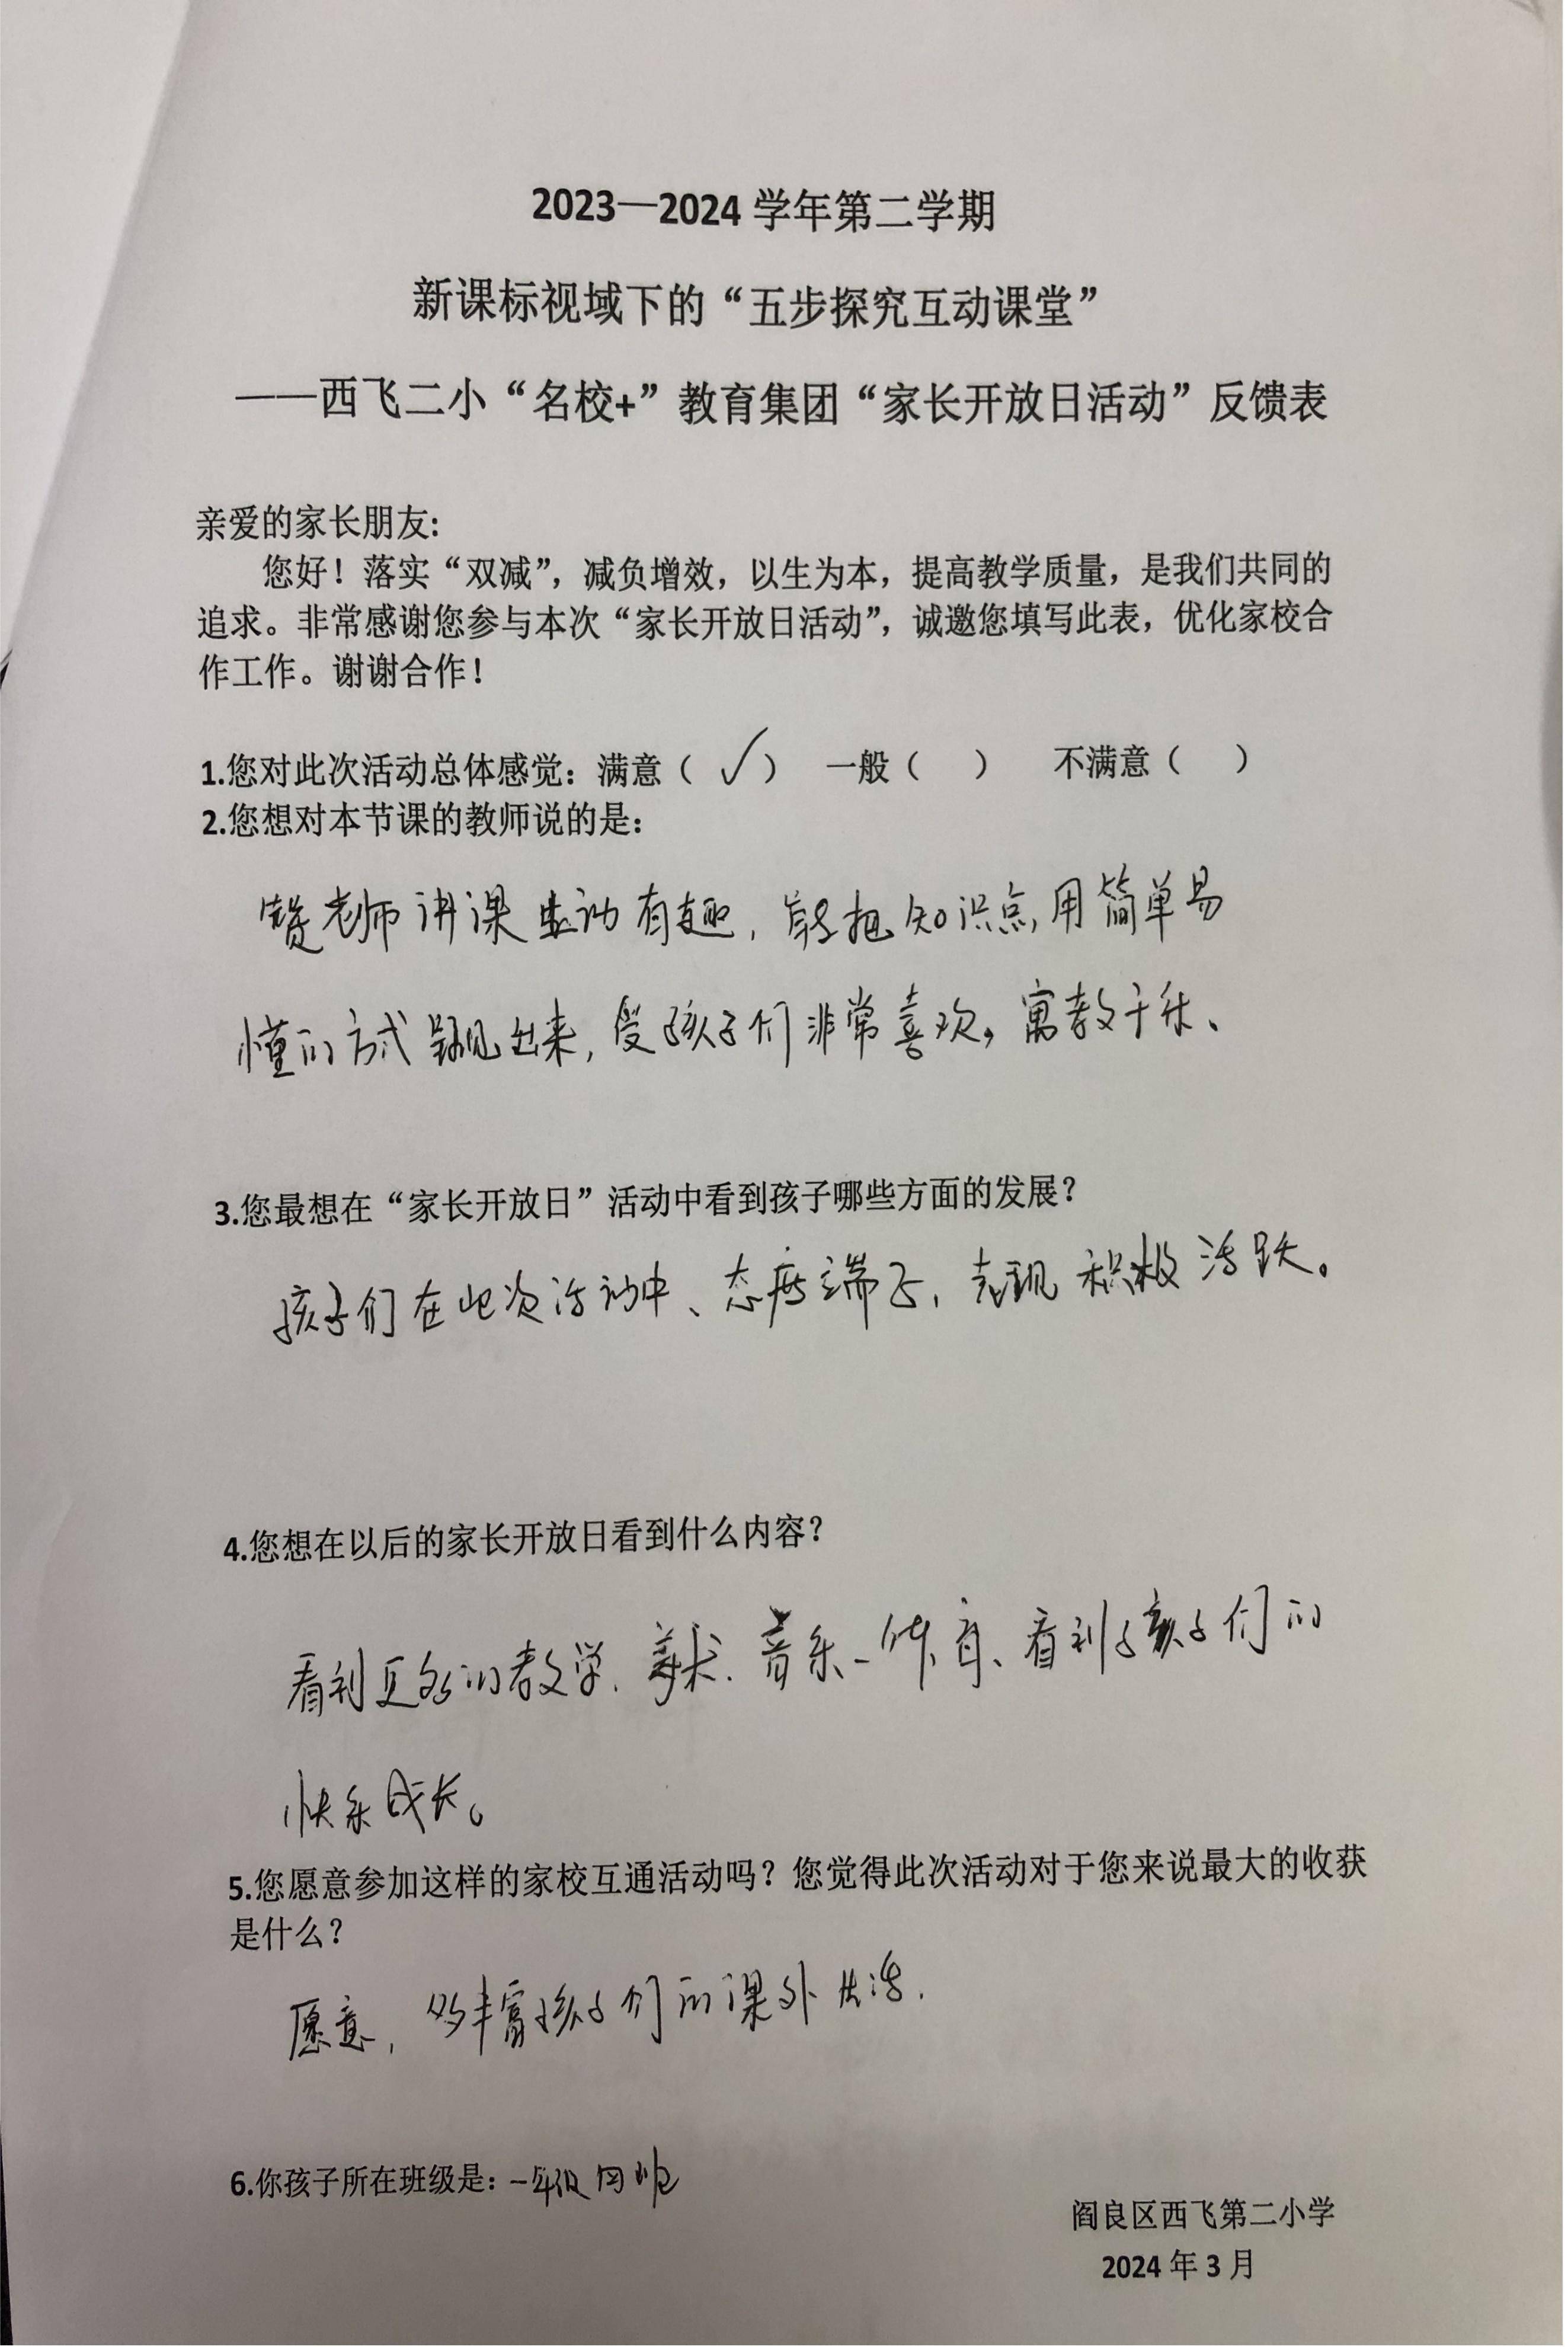 2023—2024 学年第二学期
新课标视域下的“五步探究互动课堂”
——西飞二小“名校+”教育集团“家长开放日活动”反馈表
亲爱的家长朋友:
您好！落实“双减”，减负增效，以生为本，提高教学质量，是我们共同的
追求。非常感谢您参与本次“家长开放日活动”，诚邀您填写此表，优化家校合
作工作。谢谢合作！
1.您对此次活动总体感觉：满意（ ✓ ） 一般（ ） 不满意（ ）
2.您想对本节课的教师说的是：
老师讲课生动有趣，能把知识点用简单易
懂的方式展现出来，受孩子们非常喜欢，寓教于乐、
3.您最想在“家长开放日”活动中看到孩子哪些方面的发展？
孩子们在此次活动中、态度端正，表现积极活跃。
4.您想在以后的家长开放日看到什么内容？
看到更多的教学、美术、音乐、体育、看到孩子们的
快乐成长。
5.您愿意参加这样的家校互通活动吗？您觉得此次活动对于您来说最大的收获
是什么？
愿意，多丰富孩子们的课外生活.
6.你孩子所在班级是：一年级四班
阎良区西飞第二小学
2024 年 3 月